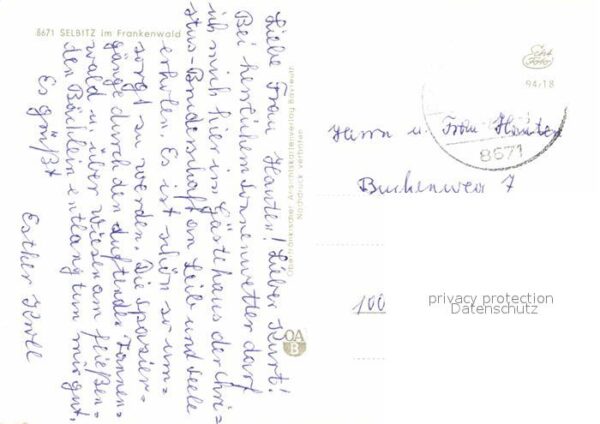 8671 SELBITZ im Frankenwald
Liebe Frau Hauten! Lieber Kurt!
Bei herrlichem Sonnenwetter darf
ich mich hier im Gästehaus der Chri=
stus-Bruderschaft an Leib und Seele
erholen. Es ist schön so um=
sorgt zu werden. Die Spazier=
gänge durch den duftenden Tannen=
wald u. über Wiesen am fließen=
den Bächlein entlang tun mir gut.
Es grüßt
Esther
Oberfränkischer Ansichtskartenverlag Bayreuth
Nachdruck verboten
OA
B
Echt
Foto
94/18
8671
Herrn u. Frau Hauten
7
100
privacy protection
Datenschutz